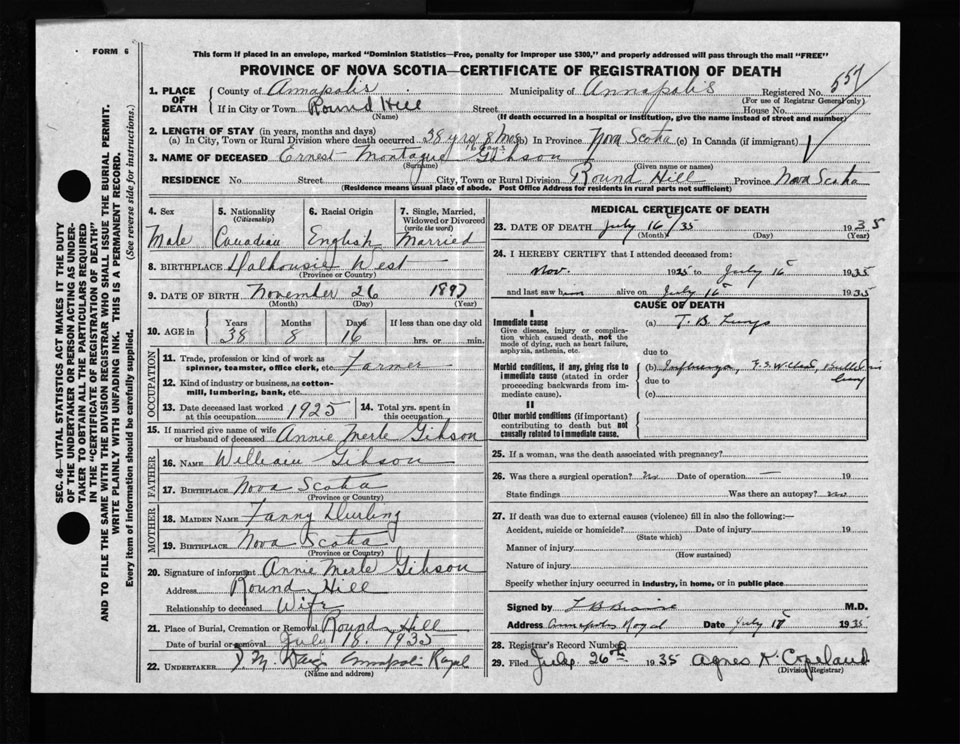 FORM 6
This form if placed in an envelope, marked "Dominion Statistics—Free, penalty for improper use $300," and properly addressed will pass through the mail "FREE"
PROVINCE OF NOVA SCOTIA—CERTIFICATE OF REGISTRATION OF DEATH
SEC. 46—VITAL STATISTICS ACT MAKES IT THE DUTY
OF THE UNDERTAKER OR PERSON ACTING AS UNDER-
TAKER TO OBTAIN ALL THE PARTICULARS REQUIRED
IN THE "CERTIFICATE OF REGISTRATION OF DEATH"
AND TO FILE THE SAME WITH THE DIVISION REGISTRAR WHO SHALL ISSUE THE BURIAL PERMIT.
WRITE PLAINLY WITH UNFADING INK. THIS IS A PERMANENT RECORD.
Every item of information should be carefully supplied. (See reverse side for instructions.)
1. PLACE OF DEATH County of Annapolis Municipality of Annapolis Registered No. 557
(For use of Registrar General only)
If in City or Town Round Hill Street House No.
(Name) (If death occurred in a hospital or institution, give the name instead of street and number)
2. LENGTH OF STAY (in years, months and days)
(a) In City, Town or Rural Division where death occurred 38 yrs 8 Mos 16 days (b) In Province Nova Scotia (c) In Canada (if immigrant)
3. NAME OF DECEASED Ernest Montague Gibson
(Surname) (Given name or names)
RESIDENCE No. Street City, Town or Rural Division Round Hill Province Nova Scotia
(Residence means usual place of abode. Post Office Address for residents in rural parts not sufficient)
4. Sex 5. Nationality (Citizenship) 6. Racial Origin 7. Single, Married, Widowed or Divorced (write the word)
Male Canadian English Married
8. BIRTHPLACE Dalhousie West
(Province or Country)
9. DATE OF BIRTH November 26 1897
(Month) (Day) (Year)
10. AGE in Years Months Days If less than one day old
38 8 16 hrs. or min.
OCCUPATION
11. Trade, profession or kind of work as spinner, teamster, office clerk, etc. Farmer
12. Kind of industry or business, as cotton-mill, lumbering, bank, etc.
13. Date deceased last worked at this occupation 1925 14. Total yrs. spent in this occupation
15. If married give name of wife or husband of deceased Annie Merle Gibson
FATHER
16. NAME William Gibson
17. BIRTHPLACE Nova Scotia
(Province or Country)
MOTHER
18. MAIDEN NAME Fanny Durling
19. BIRTHPLACE Nova Scotia
(Province or Country)
20. Signature of informant Annie Merle Gibson
Address Round Hill
Relationship to deceased Wife
21. Place of Burial, Cremation or Removal Round Hill
Date of burial or removal July 18. 1935
22. UNDERTAKER Annapolis Royal
(Name and address)
MEDICAL CERTIFICATE OF DEATH
23. DATE OF DEATH July 16 /35 1935
(Month) (Day) (Year)
24. I HEREBY CERTIFY that I attended deceased from:
Nov. 1925 to July 16 1935
and last saw him alive on July 16 1935
CAUSE OF DEATH
I
Immediate cause (a) T. B. Lungs
Give disease, injury or complication which caused death, not the mode of dying, such as heart failure, asphyxia, asthenia, etc.
due to
Morbid conditions, if any, giving rise to immediate cause (stated in order proceeding backwards from immediate cause).
(b)
due to
(c)
II
Other morbid conditions (if important) contributing to death but not causally related to immediate cause.
25. If a woman, was the death associated with pregnancy?
26. Was there a surgical operation? no Date of operation 19
State findings Was there an autopsy? no
27. If death was due to external causes (violence) fill in also the following:—
Accident, suicide or homicide? Date of injury 19
(State which)
Manner of injury
(How sustained)
Nature of injury
Specify whether injury occurred in industry, in home, or in public place
Signed by M.D.
Address Annapolis Royal Date July 17 1935
28. Registrar's Record Number
29. Filed July 26th 1935 Agnes K. Copeland
(Division Registrar)